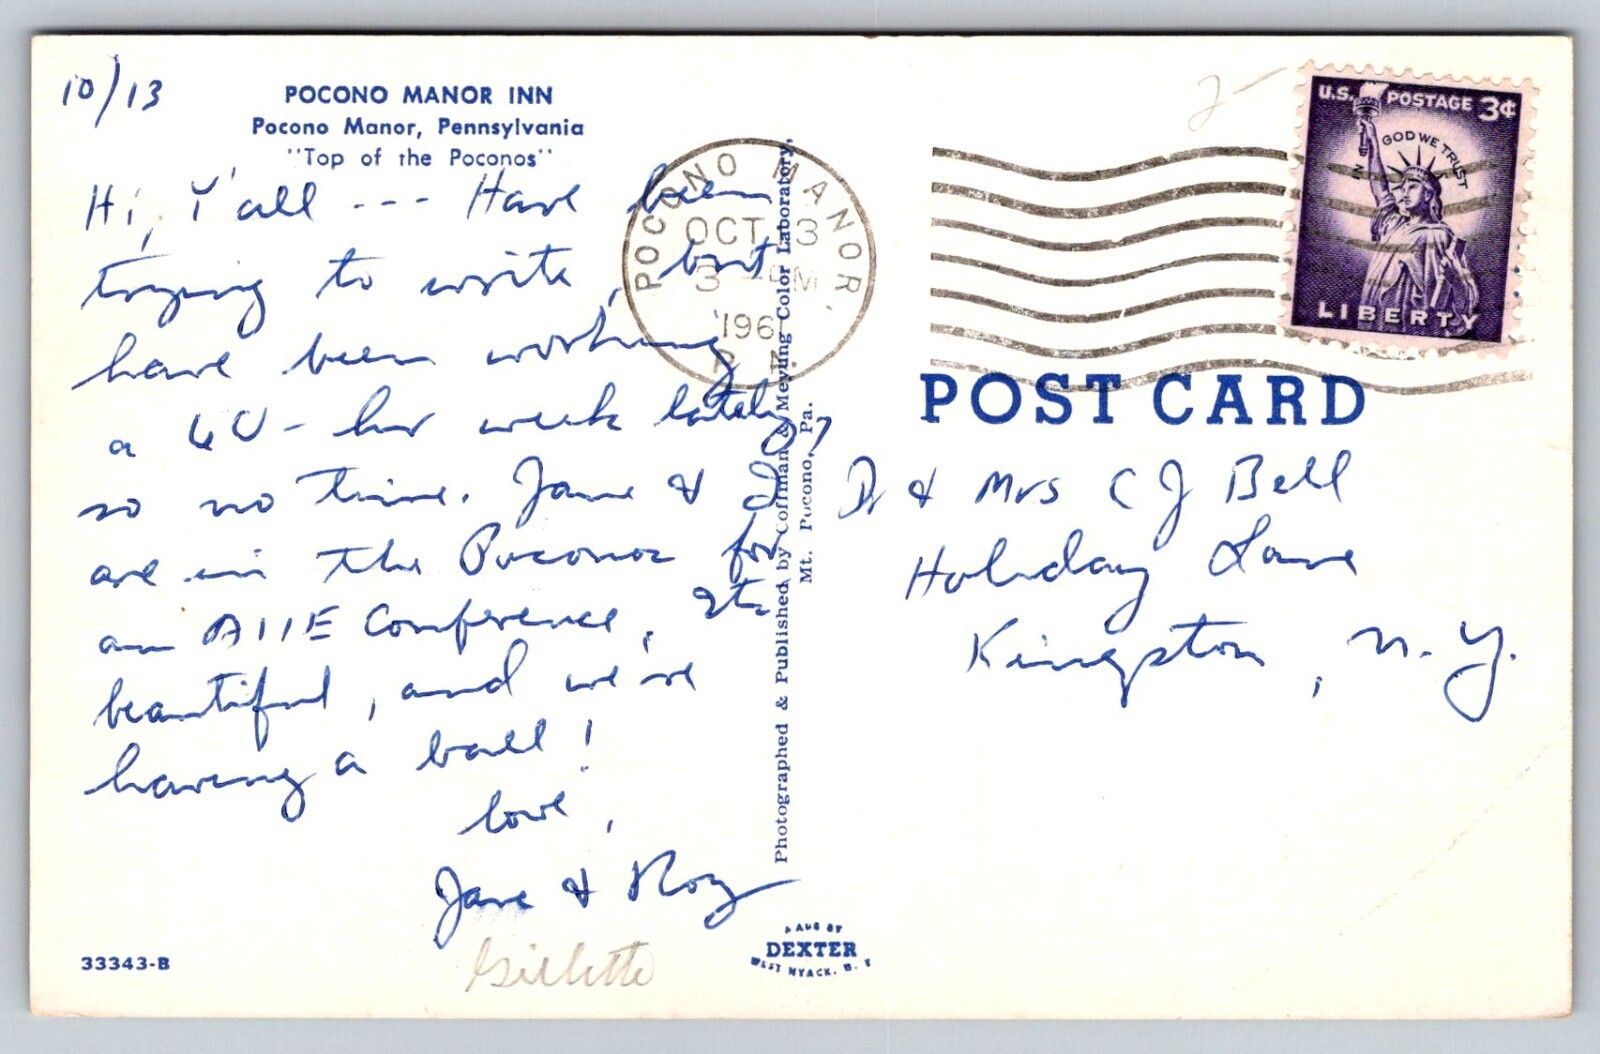 10/13
POCONO MANOR INN
Pocono Manor, Pennsylvania
"Top of the Poconos"
Hi, Y'all --- Have been
trying to write, but
have been working
a 60-hr week lately,
so no time. Jane & I
are in the Poconos for
an AIIE Conference. Its
beautiful, and we're
having a ball!
Love,
Jane & Roy
Gillette
33343-B
Photographed & Published by Coffman & Meyung Color Laboratory,
Mt. Pocono, Pa.
MADE BY
DEXTER
WEST NYACK, N. Y.
POCONO MANOR
OCT 13
3 PM
196
PA.
2-
U.S. POSTAGE 3¢
IN GOD WE TRUST
LIBERTY
POST CARD
Dr & Mrs C J Bell
Holiday Lane
Kingston, N.Y.